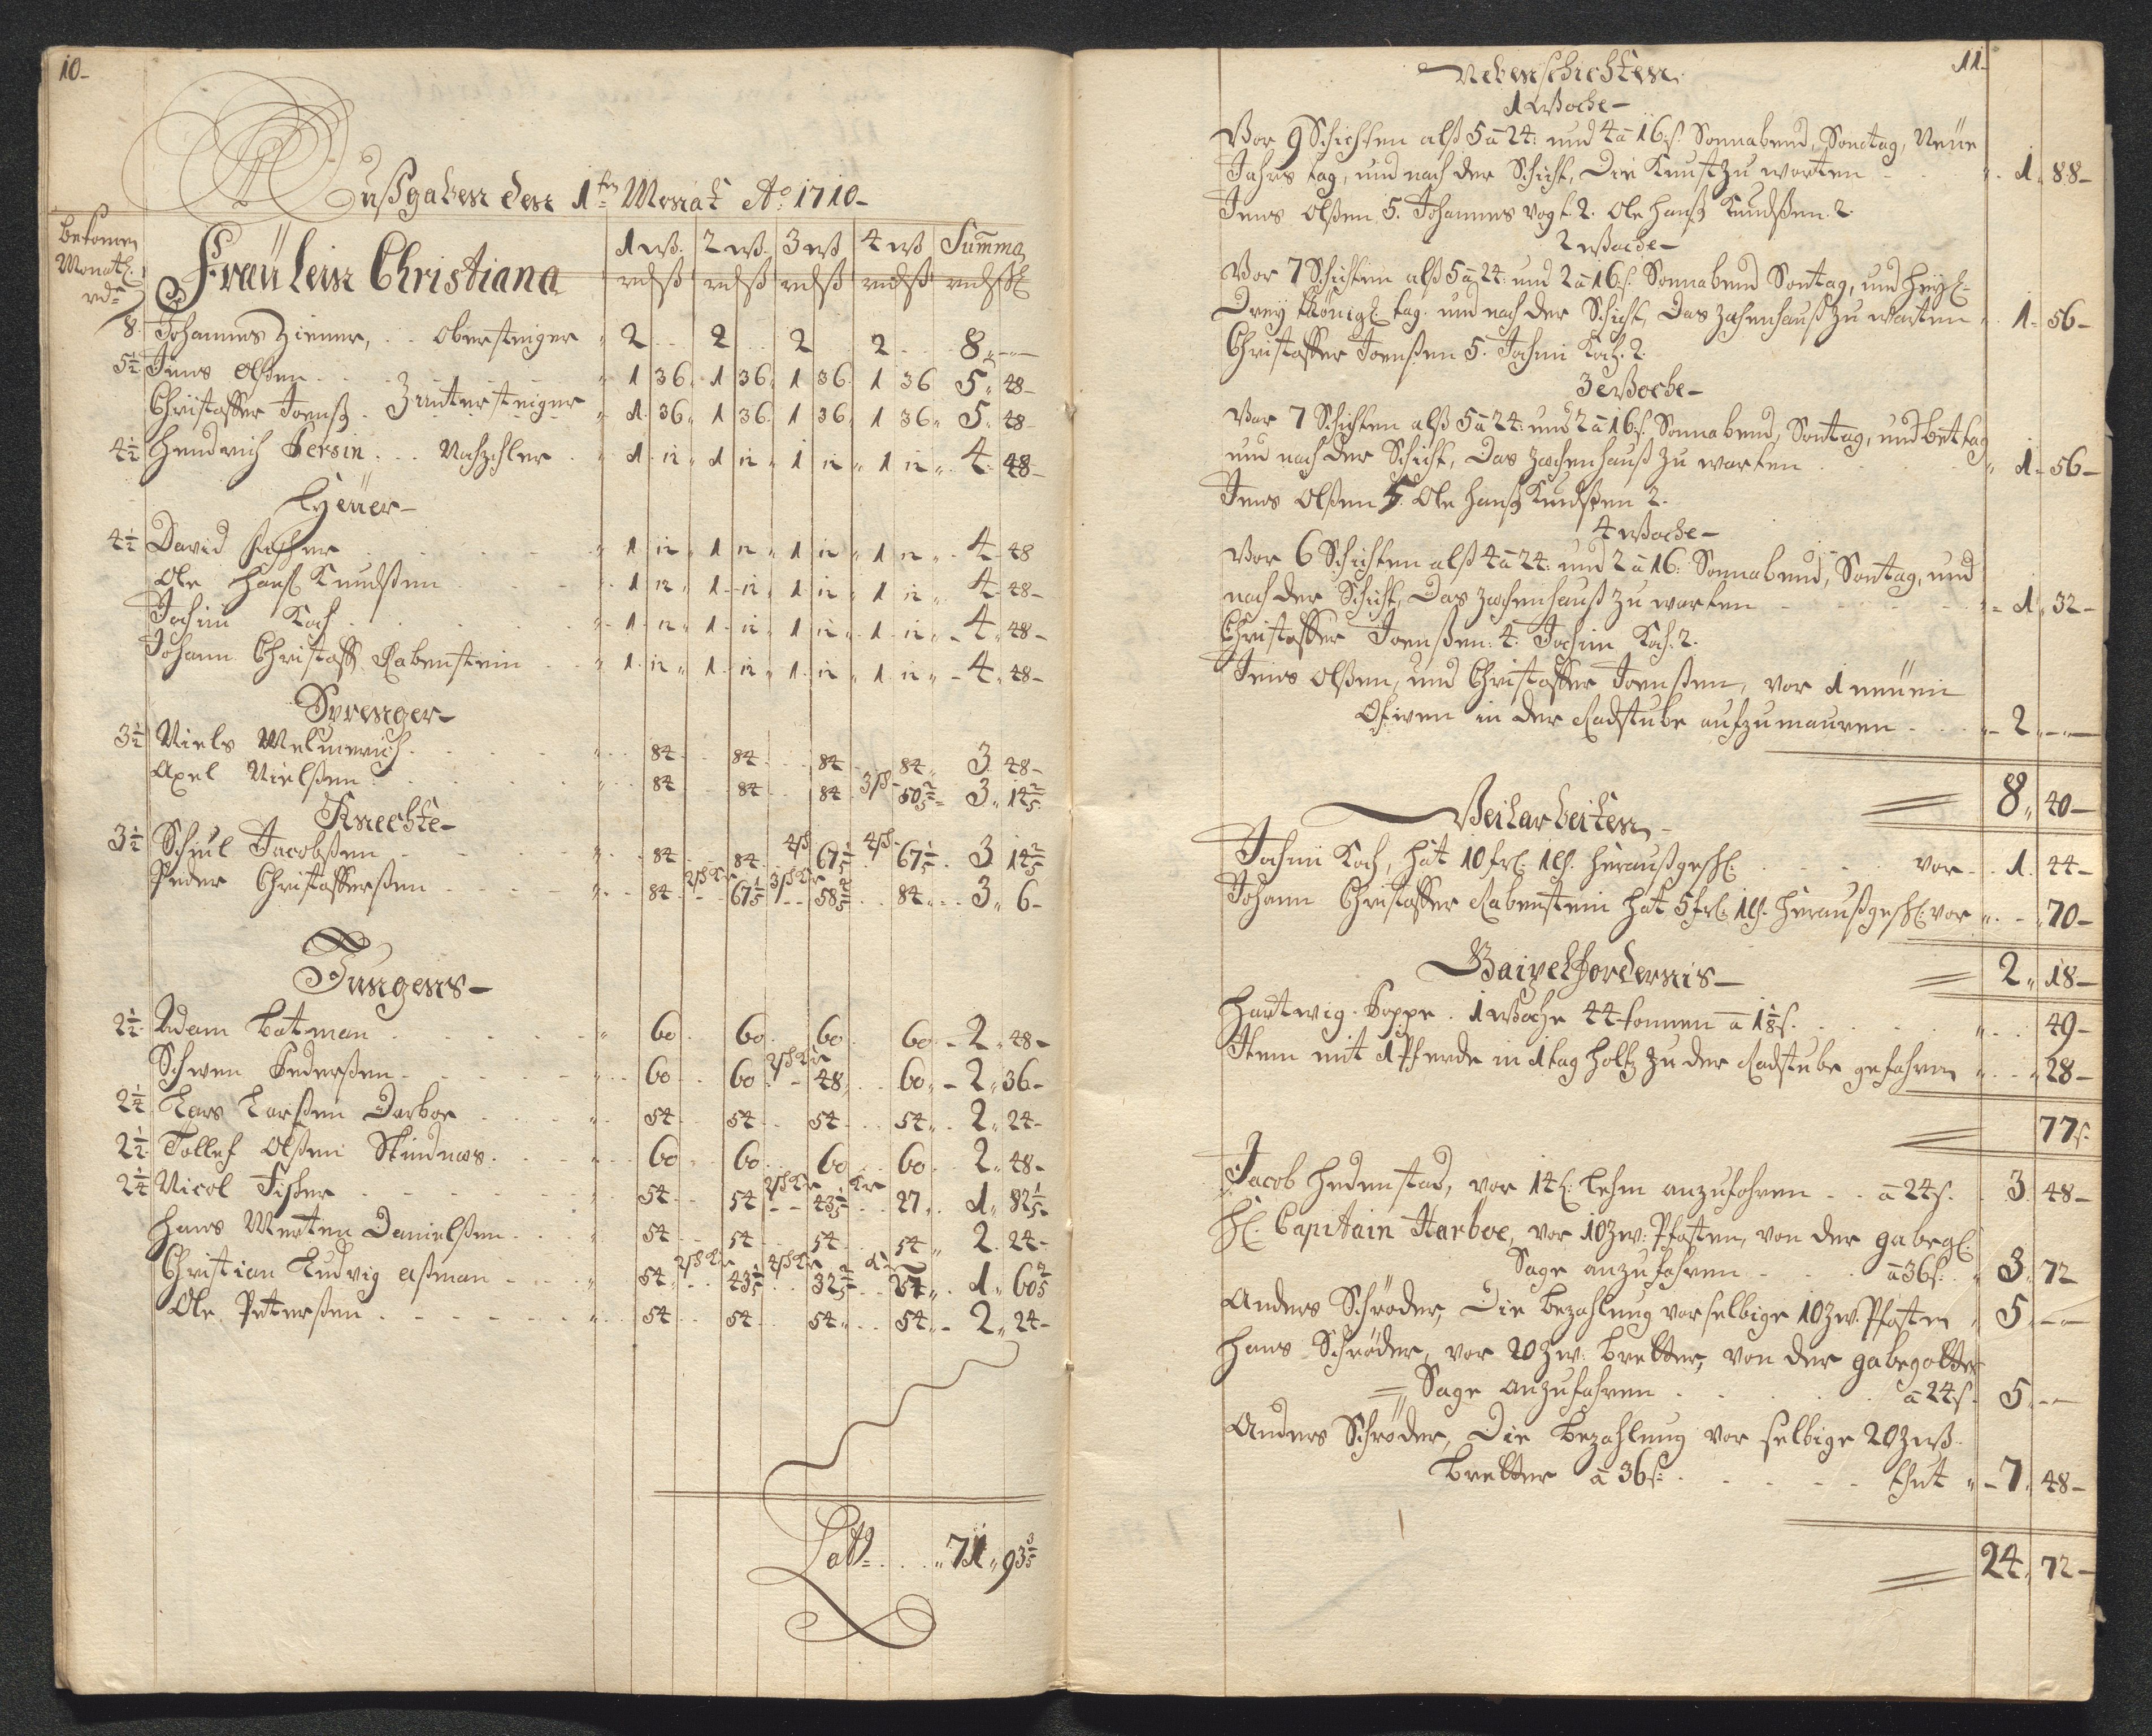 10-
Außgaben den 1ten Monat Ao: 1710-
bekomen
Monatl.
rdr
Fräulein Christiana
1 wß. 2 wß. 3 wß 4 wß Summa
rdlß rdlß rdlß rdlß rdlß
8. Johannes Ziener, . . obersteiger " 2 . . 2 . . 2 . . 2 . . 8 " -
5½ Jens Olßen . . . " 1 36 " 1 36 " 1 36 1 36 5 " 48-
Christoffer Joenß . 2 untersteiger " 1. 36 " 1 36. 1 36 " 1 36 " 5 " 48-
4½ Hendrich Persin . . . Nachzehler . " 1 12 " 1 12 " 1 12 " 1 12 " 4 " 48-
Hyeüer-
4½ David . . . " 1 12 " 1 12 " 1 12 " 1 12 " 4 48
Ole Hanß Knudßen . . . 1 12 " 1 12 " 1 12 " 1 12 " 4 48-
Jochim Koch . . . 1 12 " 1 12 " 1 12 " 1 12 " 4 " 48-
Johann Christoff Rabenstein . . " 1 12 " 1 12 " 1 12 " 1 12 " 4 " 48-
Sprenger-
3½ Niels . . . 84 . . 84 . . 84 . . 84 " 3 48-
Axel Nielßen . . . 84 . . 84 . . 84 3ß 50⅖ 3 " 14⅖
Knechte-
3½ Schiul Jacobßen . . . 84 . . 84 4ß 67⅕ 4ß 67⅕ . 3 14⅖
Peder Christofferßen . . . 84 2ß Kr 67⅕ 3ß Kr 58⅖ . . 84 . . 3 " 6-
Jungens-
2½ Adam Batman . . . " 60 . 60 . 60 . 60 . - 2 " 48-
Schwen Pederßen . . . 60 . . 60 2ß Kr 48 . . 60 " - 2 " 36-
2¼ Lars Larßen Darboe . . . 54 . . 54 . . 54 . . 54 . . 2 " 24-
2½ Tollef Olßen Skindnæs . . . 60 . . 60 . . 60 . . 60 . . 2 " 48-
2¼ Nicol Fißer . . . 54 . . 54 2ß Kr 43⅕ Kr 27 " 1 " 82⅕
Hans Merten Danielßen . . . 54 . . 54 . . 54 . . 54 " 2 24-
Christian Ludvig aßman . . . 54 2ß Kr 43⅕ 4ß Kr 32⅖ . . 27 " 1 " 60⅖
Ole Peterßen . . . 54 . . 54 . . 54 . . 54 " - 2 " 24-
Latt . . . " 71 " 93⅗
11-
Nebenschichten
1 Woche-
Vor 9 Schichten alß 5 a 24: und 4 a 16 s. Sonnabend, Sontag, Neüe
Jahrs tag, und nach der Schicht, Die Kunst zu warten . . " 1 " 88-
Jens Olßen. 5. Johannes Vogt. 2. Ole Hanß Knudßen. 2.
2 Woche-
Vor 7 Schichten alß 5 a 24: und 2 a 16 s. Sonnabend Sontag, und heyl-
Drey Königl. tag. und nach der Schicht, Das zechenhauß zu warten " 1 " 56-
Christoffer Joenßen 5. Jochim Koch. 2.
3 Woche-
Vor 7 Schichten alß 5 a 24: und 2 a 16 s. Sonnabend, Sontag, und bettag
und nach der Schicht, Das zechenhauß zu warten . . . " 1 " 56-
Jens Olßen 5. Ole Hanß Knudßen 2.
4 Woche-
Vor 6 Schichten alß 4 a 24: und 2 a 16: Sonnabend, Sontag, und
nach der Schicht, Das zechenhauß zu warten - - - - " 1 " 32-
Christoffer Joenßen: 4. Jochim Koch: 2.
Jens Olßen, und Christoffer Joenßen, vor 1 neüen
Ofwen in der Radstube aufzumauren . . . " - 2 " -
8 " 40-
Beilarbeiten-
Jochim Koch, hat 10 frl. 1 lh. heraußgeschl . . . vor . . 1. 44-
Johann Christoffer Rabenstein hat 5 frl. 1 lh. heraußgeschl: vor " . . " 70-
2 " 18-
Gaipelfordernis-
Hartwig Poppe. 1 Woche 44 tonnen a 1⅛ s. . . . " . . 49-
Item mit 1 Pferde in 1 tag holtz zu der Radstube gefahren " . . " 28-
77 s.
Jacob Hedenstad, vor 14 l. lehm anzufahren . . a 24 s. . 3. 48-
H. Capitain Harboe, vor 10 zw: Pfosten, von der gabegl:
Sage anzufahren . . . a 36 s: " 3 " 72
Anders Schröder, Die bezahlung vor selbige 10 zw. Pfosten " 5 " -
Hans Schröder, vor 20 zw: bretter, von der gabegotter
Sage anzufahren . . . a 24 s. 5 " -
Anders Schröder, Die bezahlung vor selbige 20 zwß
bretter a 36 s: . . . thut " - 7. 48-
24 " 72-